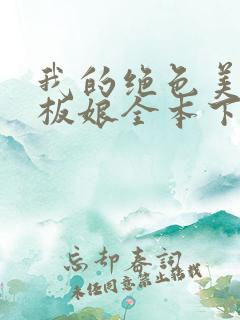 我的绝色美
板娘全本下
忘却春词
未经同意禁止转载